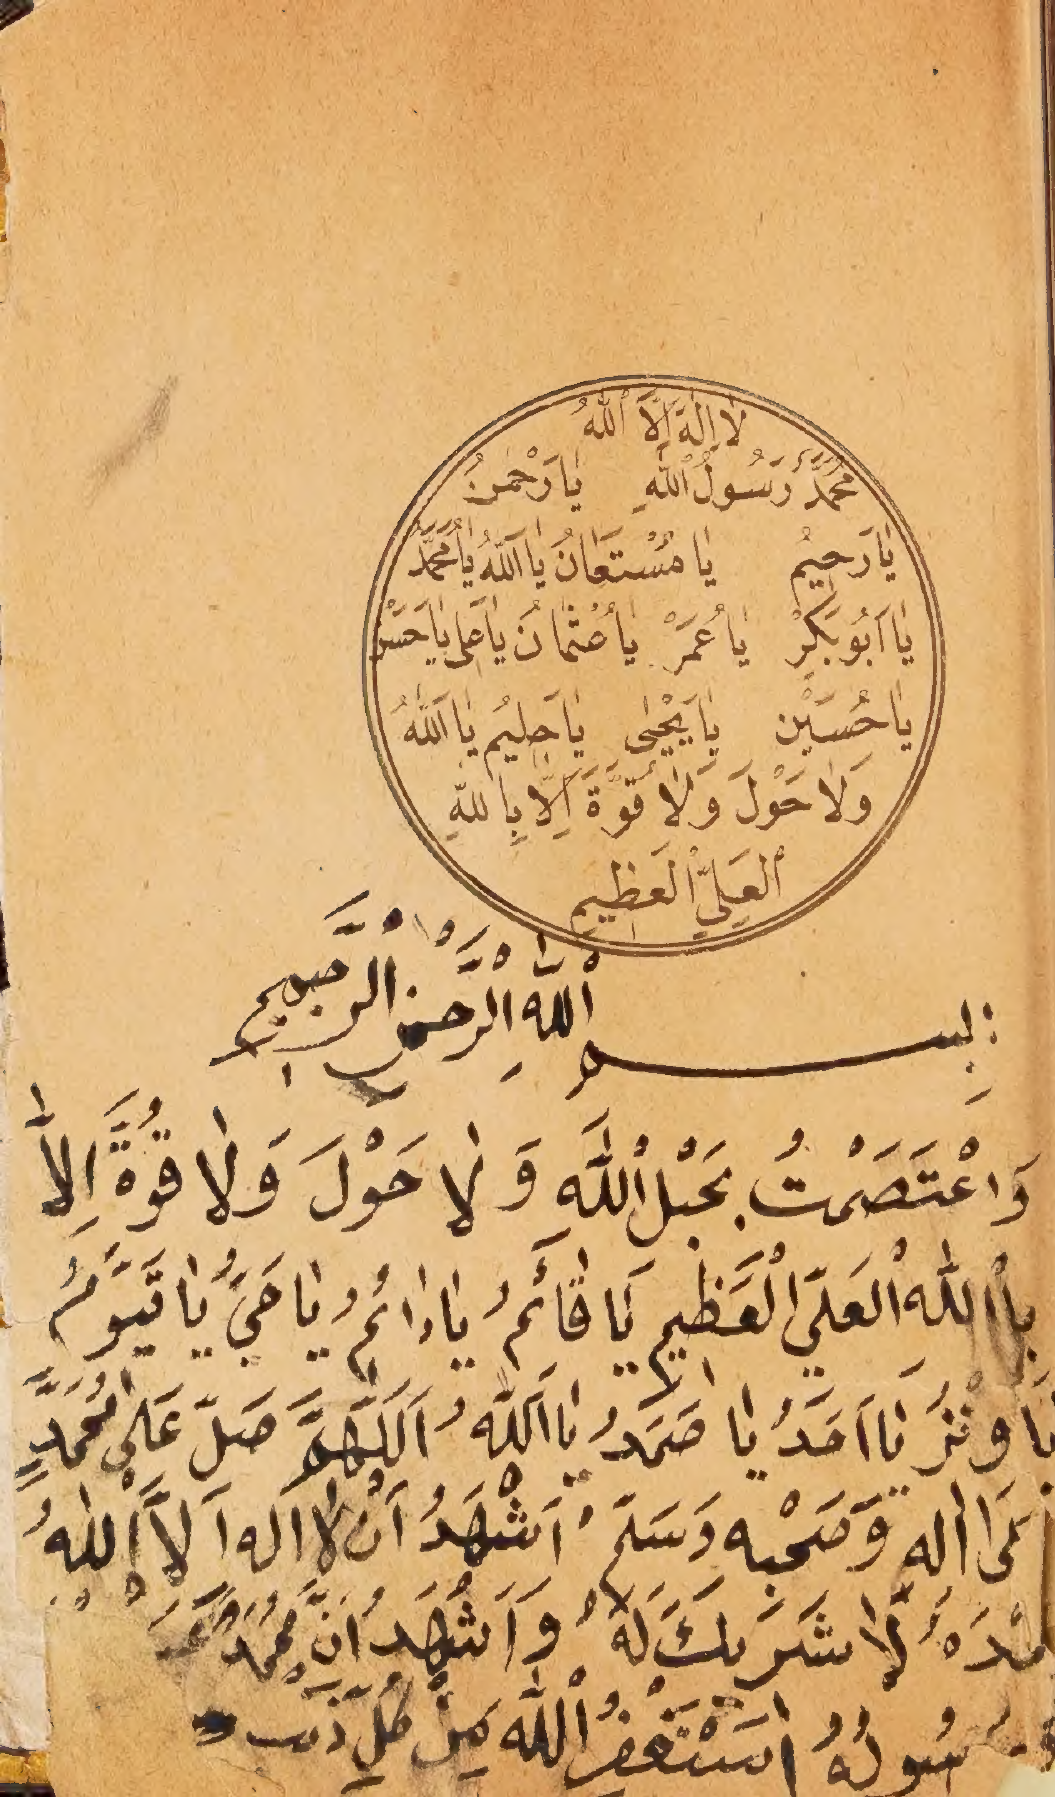 لَا اِلٰهَ اِلَّا اللّٰهُ
مُحَمَّدٌ رَسُولُ اللّٰهِ يَا رَحْمٰنُ
يَا رَحِيمُ يَا مُسْتَعَانُ يَا اَللّٰهُ يَا مُحَمَّدُ
يَا اَبُو بَكَرْ يَا عُمَرْ يَا عُثْمَانُ يَا عَلى يَا حَسَنْ
يَا حُسَيْن يَا يَحْيٰى يَا حَلِيمُ يَا اَللّٰهُ
وَلَا حَوْلَ وَلَا قُوَّةَ اِلَّا بِاللّٰهِ
الْعَلِيِّ الْعَظِيمِ
بِسْمِ اللّٰهِ الرَّحْمٰنِ الرَّحِيمِ
وَاعْتَصَمْتُ بِحَبْلِ اللّٰهِ وَلَا حَوْلَ وَلَا قُوَّةَ اِلَّا
بِاللّٰهِ الْعَلِيِّ الْعَظِيمِ يَا قَائِمُ يَا دَائِمُ يَا حَيُّ يَا قَيُّومُ
يَا وِتْرُ يَا اَحَدُ يَا صَمَدُ يَا اَللّٰهُ اَللّٰهُمَّ صَلِّ عَلٰى مُحَمَّدٍ
اٰلِه وَصَحْبِه وَسَلَّمْ اَشْهَدُ اَنْ لَا اِلَه اِلَّا اللّٰهُ
لَا شَرِيكَ لَهُ وَاَشْهَدُ اَنَّ مُحَمَّدًا
اَسْتَغْفِرُ اللّٰه مِنْ كُلِّ ذَنْبٍ